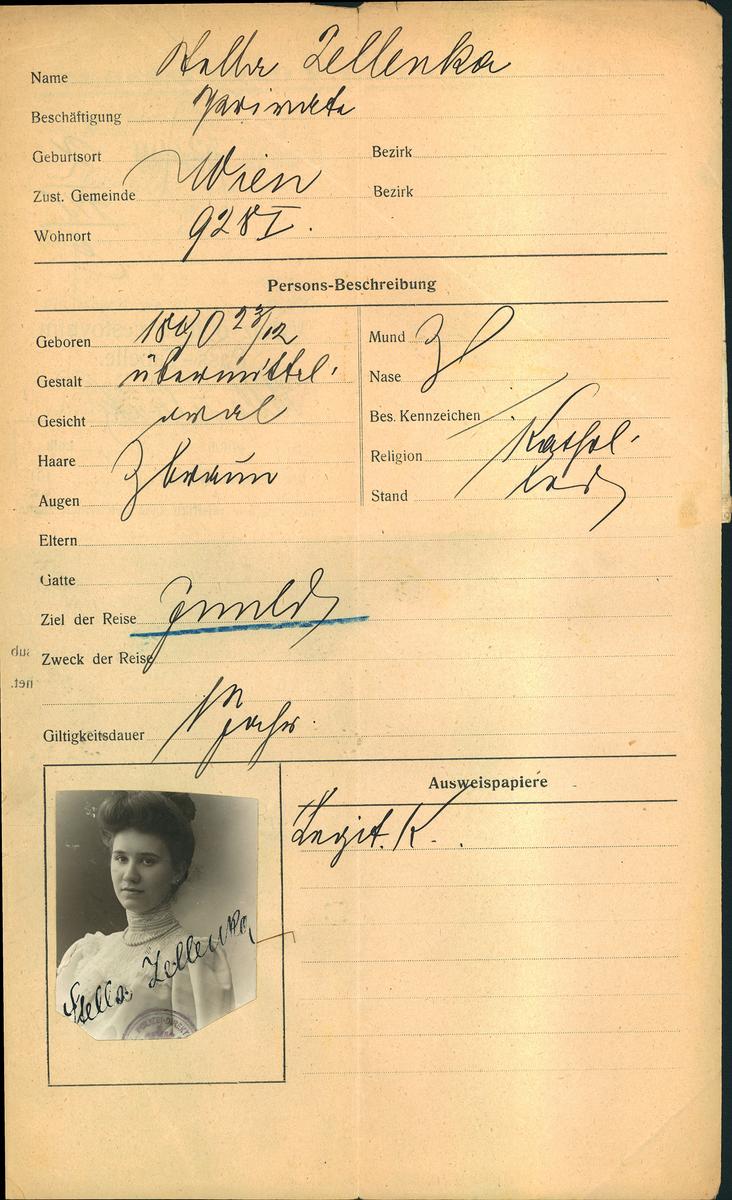 Name Stella Zellenka
Beschäftigung Private
Geburtsort Wien Bezirk
Zust. Gemeinde Bezirk
Wohnort 928 I.
Persons-Beschreibung
Geboren 23/12
Gestalt übermittel.
Gesicht oval
Haare braun
Augen
Mund
Nase
Bes. Kennzeichen
Religion Kathol.
Stand led
Eltern
Gatte
Ziel der Reise
Zweck der Reise
Giltigkeitsdauer 1 Jahr.
Ausweispapiere
Legit. K.
Stella Zellenka
POLIZEI-DIREKT